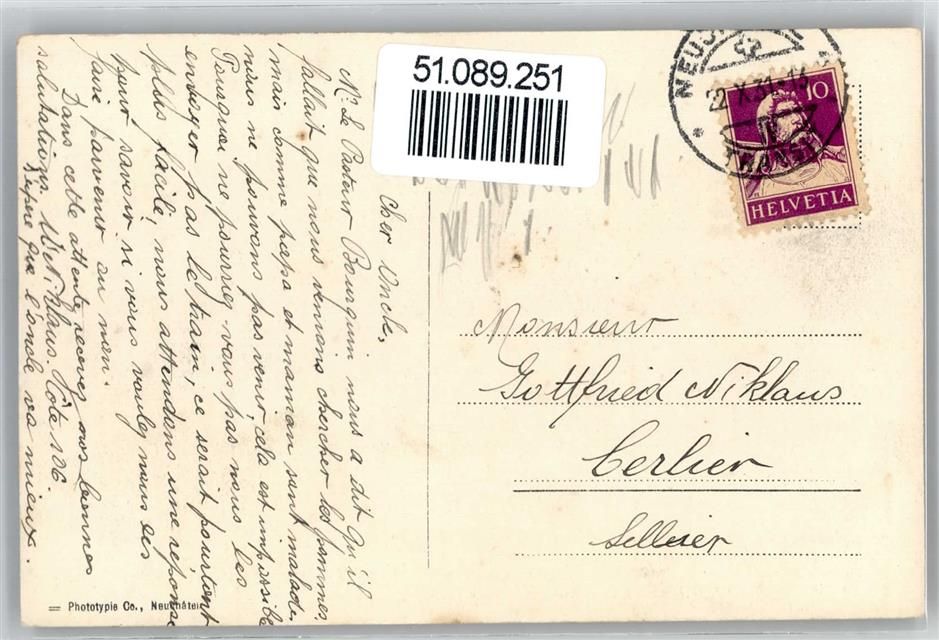 51.089.251
NEUCH
22.X.31-13
TRANSI
10
HELVETIA
Cher Oncle,
Mr. Le Pasteur Bourquin nous a dit qu'il
fallait que nous venions chercher les pommes,
mais comme papa et maman sont malades
nous ne pouvons pas venir, cela est impossible
Pourriez vous pas nous les
envoyer pas le train, ce serait pourtant
plus facile, nous attendons une réponse
pour savoir si vous voulez nous les
faire parvenir ou non.
Dans cette attente recevez nos bonnes
salutations. Niklaus. Côte 126.
que l'oncle va mieux.
Monsieur
Gottfried Niklaus
Cerlier
Sellier
Phototypie Co., Neuchâtel